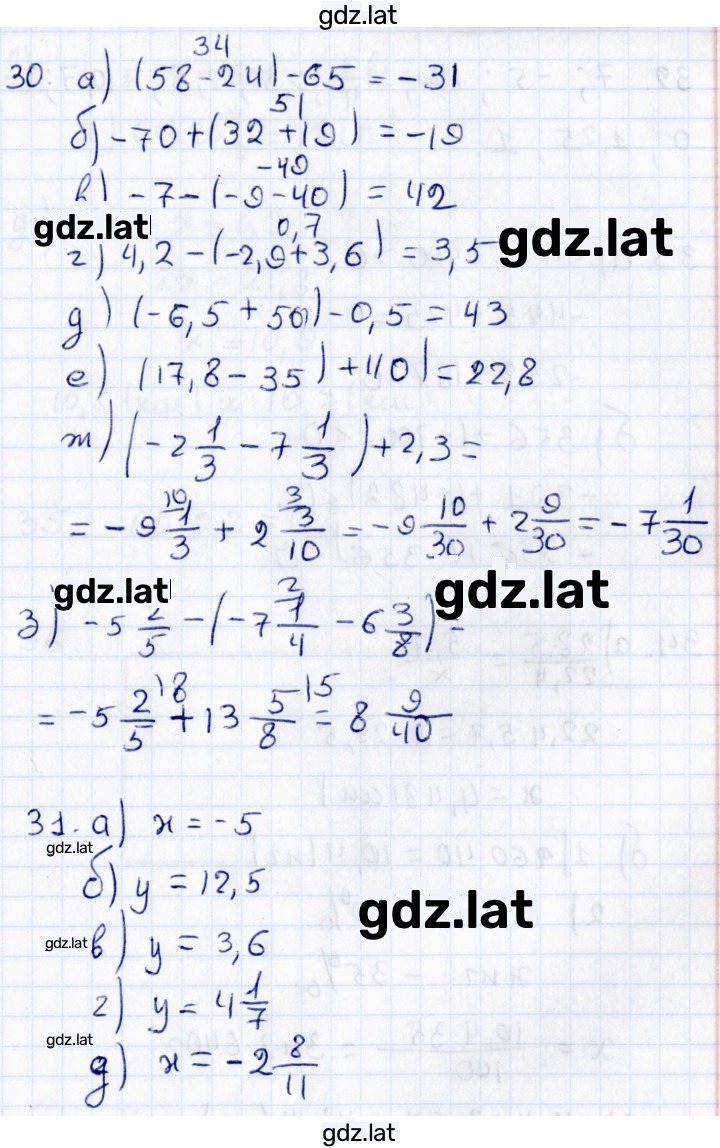 gdz.lat
34
30. а) (58-24)-65 = -31
51
б) -70+(32+19) = -19
-49
в) -7-(-9-40) = 42
gdz.lat
0,7
г) 4,2-(-2,9+3,6) = 3,5
gdz.lat
д) (-6,5+50)-0,5 = 43
е) (17,8-35)+40) = 22,8
ж) (-2 1/3 - 7 1/3) + 2,3 =
= -9 1/3 (10) + 2 3/10 (3) = -9 10/30 + 2 9/30 = -7 1/30
gdz.lat
gdz.lat
з) -5 2/5 - (-7 1/4 (2) - 6 3/8) =
= -5 2/5 (18) + 13 5/8 (15) = 8 9/40
31. а) x = -5
gdz.lat
б) y = 12,5
gdz.lat
gdz.lat
в) y = 3,6
г) y = 4 1/7
gdz.lat
д) x = -2 8/11
gdz.lat